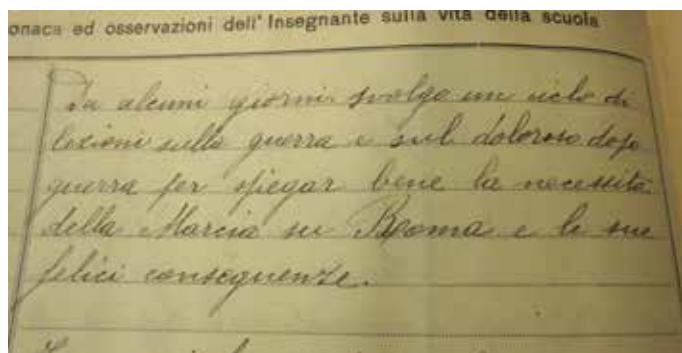 onaca ed osservazioni dell'Insegnante sulla vita della scuola
Da alcuni giorni svolgo un ciclo di
lezioni sulla guerra e sul doloroso dopo
guerra per spiegar bene la necessità
della Marcia su Roma e le sue
felici conseguenze.